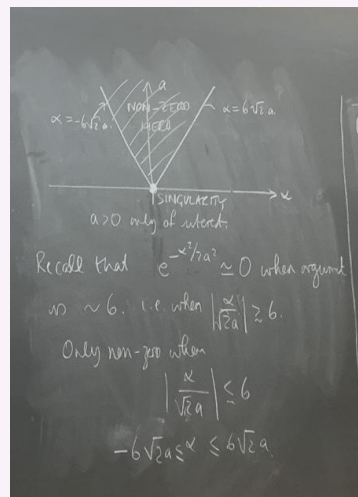 a
NON-ZERO
HERE
α = -6√2 a.
α = 6√2 a.
α
SINGULARITY
a > 0 only of interest.
Recall that e^{-α²/2a²} ≃ 0 when argument
is ~ 6. i.e. when |α/√2a| ≳ 6.
Only non-zero when
|α/√2a| ≤ 6
-6√2a ≤ α ≤ 6√2a.